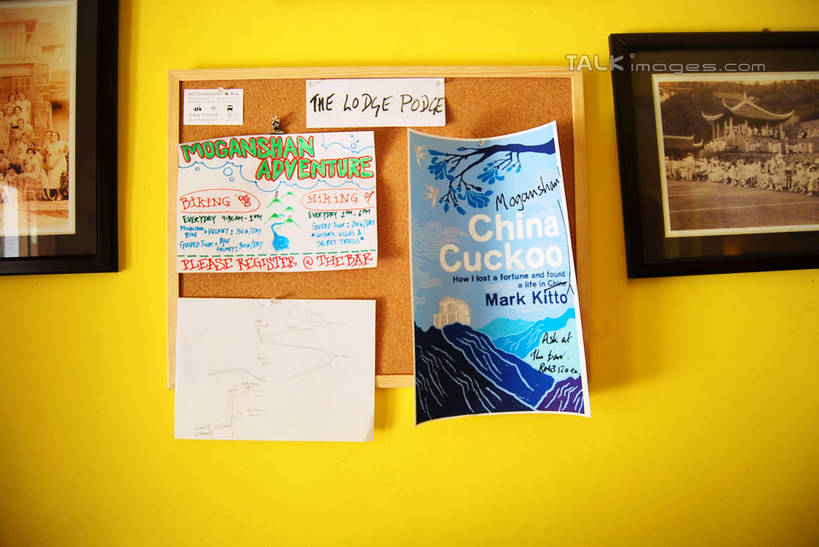 TALKimages.com
MOGANSHAN
THE LODGE PODGE
MOGANSHAN
ADVENTURE
BIKING
HIKING
EVERYDAY 9:30AM - 1PM
EVERYDAY 2PM - 6PM
MOUNTAIN
BIKE + HELMET: 150¥/DAY
GUIDED TOUR + BIKE
HELMET: 300¥/DAY
GUIDED TOUR: 200¥/DAY
HISTORIC VILLAS &
SECRET TRAILS
PLEASE REGISTER @ THE BAR
Moganshan!
China
Cuckoo
How I lost a fortune and found
a life in China
Mark Kitto
Ask at
the bar.
RMB 120 ea